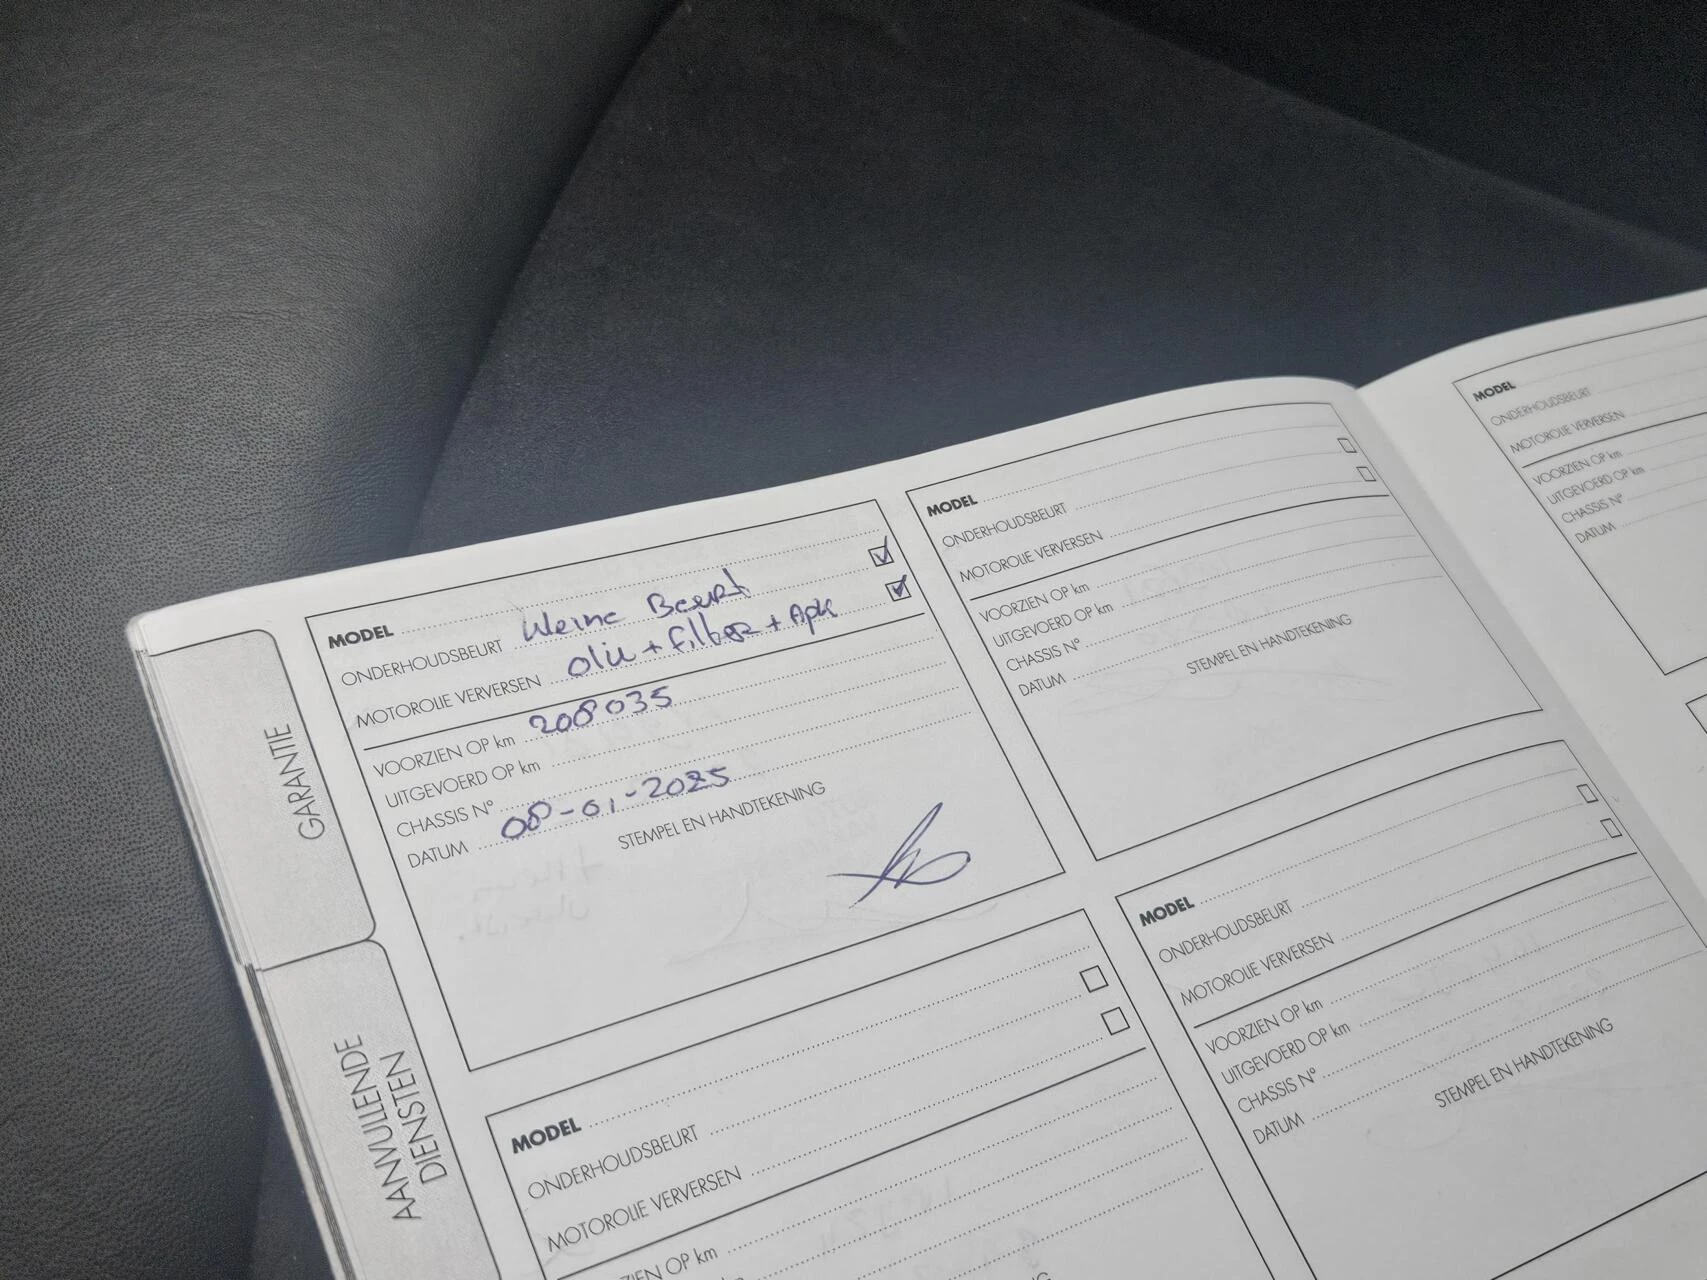 GARANTIE
AANVULLENDE
DIENSTEN
MODEL
ONDERHOUDSBEURT Kleine Beurt
MOTOROLIE VERVERSEN Olie + filter + Apk
VOORZIEN OP km 208035
UITGEVOERD OP km
CHASSIS N°
DATUM 08-01-2025
STEMPEL EN HANDTEKENING
MODEL
ONDERHOUDSBEURT
MOTOROLIE VERVERSEN
VOORZIEN OP km
UITGEVOERD OP km
CHASSIS N°
DATUM
STEMPEL EN HANDTEKENING
MODEL
ONDERHOUDSBEURT
MOTOROLIE VERVERSEN
OP km
MODEL
ONDERHOUDSBEURT
MOTOROLIE VERVERSEN
VOORZIEN OP km
UITGEVOERD OP km
CHASSIS N°
DATUM
STEMPEL EN HANDTEKENING
MODEL
ONDERHOUDSBEURT
MOTOROLIE VERVERSEN
VOORZIEN OP km
UITGEVOERD OP km
CHASSIS N°
DATUM